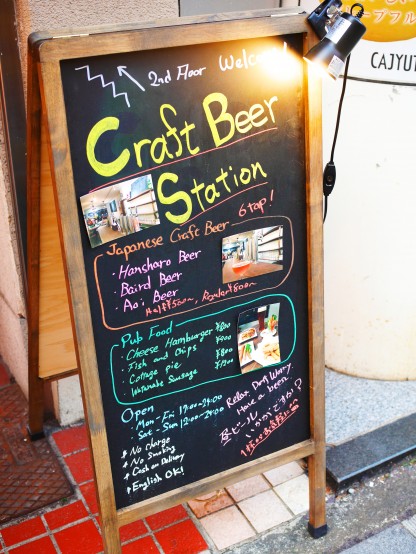 2nd Floor Welcome!
Craft Beer
Station
Japanese Craft Beer 6 tap!
・Hansharo Beer
・Baird Beer
・Aoi Beer
Half ¥500~, Regular ¥800~
Pub Food
・Cheese Hamburger ¥800
・Fish and Chips ¥900
・Cottage pie ¥800
・Watanabe Sausage
Open
・Mon - Fri 17:00~24:00
・Sat - Sun 12:00~24:00
* No charge
* No Smoking
* Cash on Delivery
* English OK!
Relax, Don't Worry
Have a beer.
生ビール
いかがですか?
CAJYUT